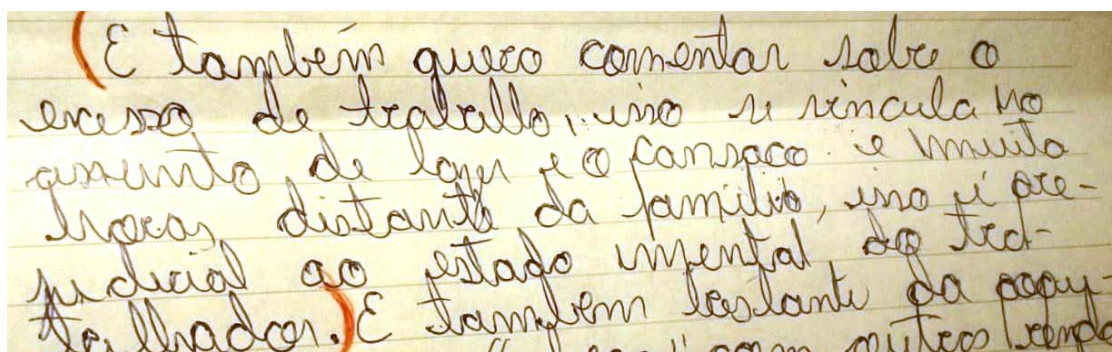 (E também quero comentar sobre o
excesso de trabalho, isso se vincula no
assunto de lazer e o cansaço e muita
horas distante da familia, isso é pre-
judicial ao estado mental do tra-
balhador.) E também bastante da popu-